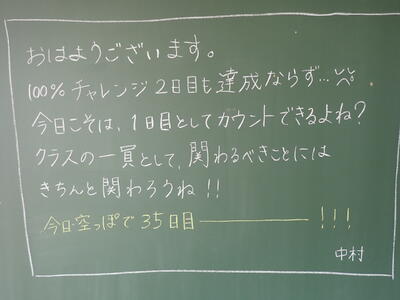 おはようございます。
100% チャレンジ 2日目も達成ならず…
今日こそは、1日目としてカウントできるよね?
クラスの一員として、関わるべきことには
きちんと関わろうね!!
今日空っぽで35日目―――!!!
中村